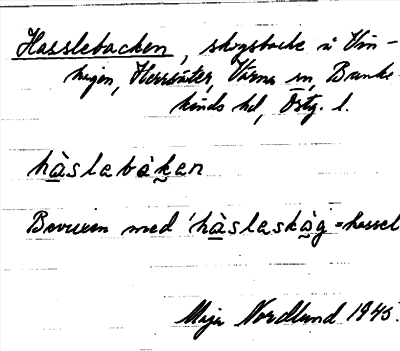 Hasslebacken, skogsbacke i Vin-
hagen, Herrsäter, Värna sn, Banke-
kinds hd, Östg. l.
hàslebàkan
Bevuxen med 'hàslaskòg = hassel
Maja Nordlund 1945.